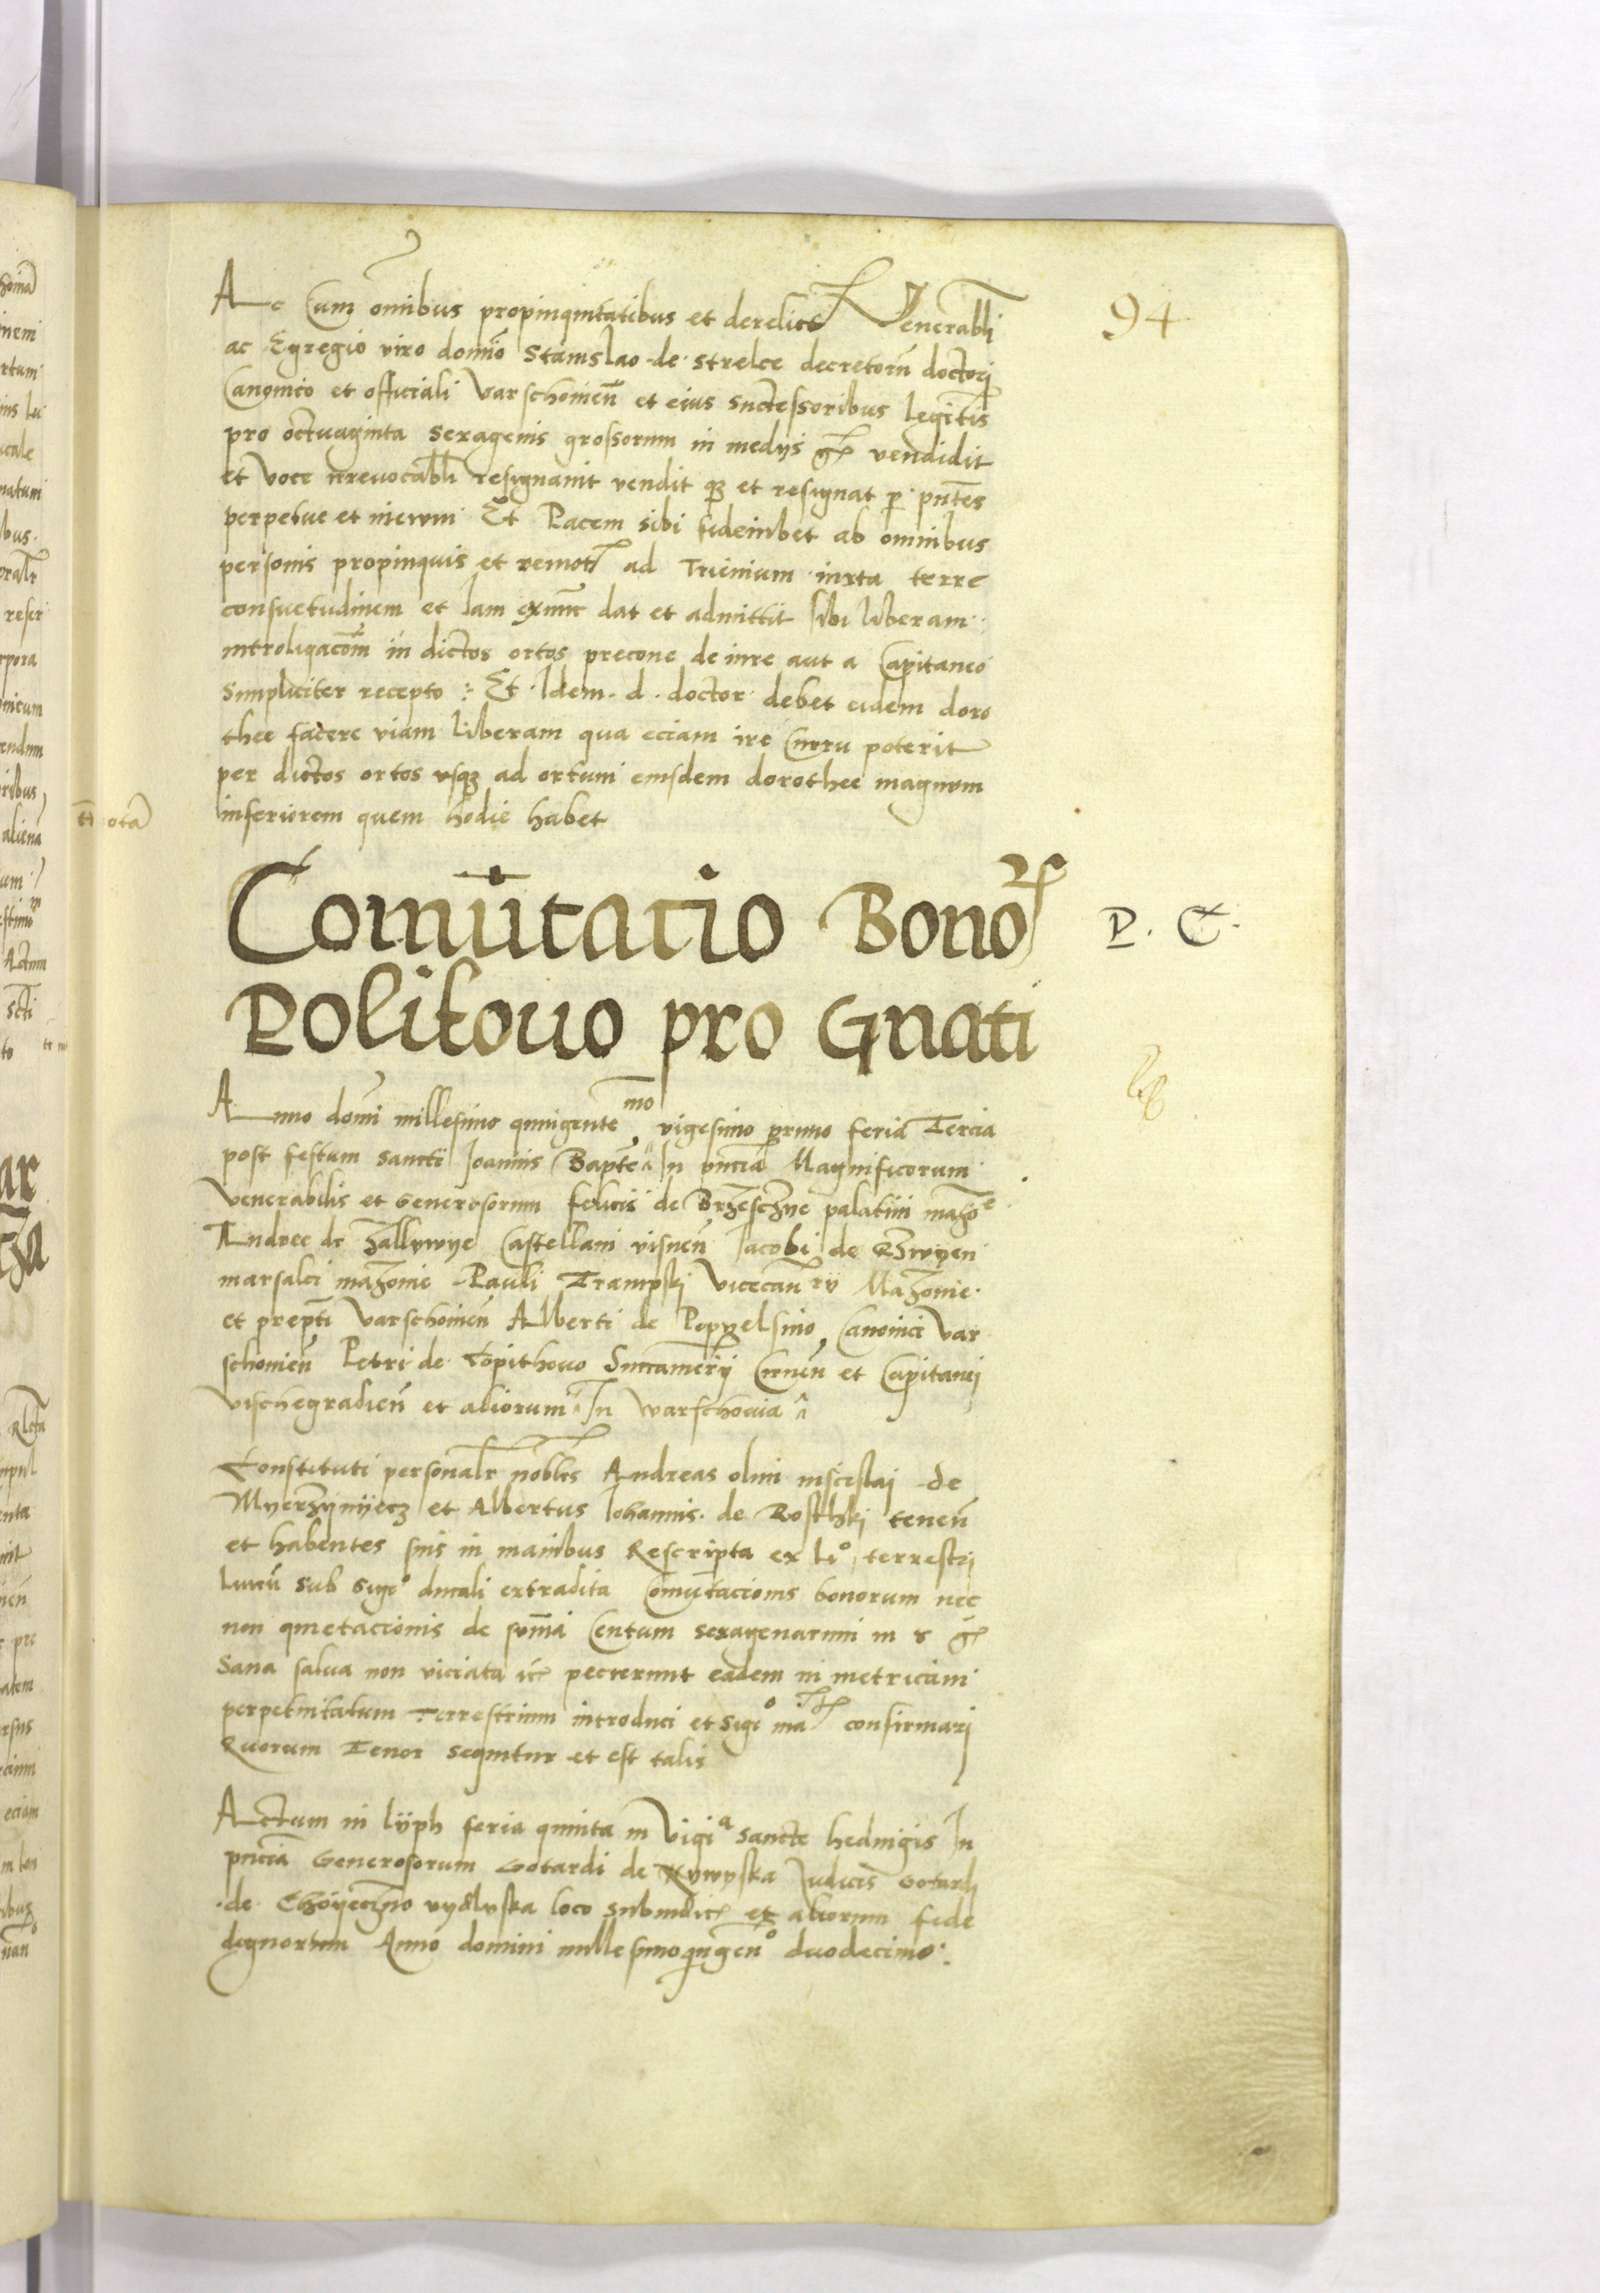 94
Ac Cum omnibus propinquitatibus et derelict Venerabli
ac Egregio viro domio Stanislao de strelce decretorū doctori
Canonico et officiali Varschouieñ et eius successoribus legitis
pro octuaginta sexagenis grossorum in medijs gr vendidit
et voce irreuocabli resignauit vendit qz et resignat p pntes
perpetue et in ewm Et Pacem sibi fideiubet ab omnibus
personis propinquis et remot ad Trienium iuxta terre
consuetudinem et Iam exnunc dat et admittit sibi liberam
introligacoem in dictos ortos precone de iure aut a Capitaneo
simpliciter recepto : Et Idem d. doctor debet eidem doro
thee facere viam liberam qua eciam ire Curru poterit
per dictos ortos vsqz ad ortum eiusdem dorothee magnum
inferiorem quem hodie habet
Comūtatio Bonoꝝ
Polikouo pro Gnati
P. C.
Anno domi millesimo quingentemo vigesimo primo feria Tercia
post festum sancti Ioannis Bapte In pncia Magnificorum
Venerabilis et Generosorum felicis de Brzesczye palatini mazoe
Andree de Zallywye Castellani visneñ Iacobi de Rzwyen
marsalci mazouie Pauli Trampski Vicecanrij Mazouie
et prepti Varschouieñ Alberti de Popyelsino Canonici Var
schouieñ Petri de Kopithowo Succamerij Cirneñ et Capitanei
Vischegradieñ et aliorum In Warschouia
Constituti personalr nobles Andreas olim msczislai de
Myerzynyecz et Albertus Iohannis de Rosthki teneñ
et habentes suis in manibus Rescripta ex lio terrestri
Liweñ sub sigo ducali extradita Comūtacionis bonorum nec
non quietaccionis de summa Centum sexagenarum in r gr
Sana salua non viciata etc petierunt eadem in metricam
perpetuitatum Terrestrium introduci et sigo confirmari
Quorum Tenor sequitur et est talis
Actum in lyph feria quinta in Vigia sancte heduigis In
pncia Generosorum Gotardi de Rywyska Iudicis Gotardi
de Choyeczno loco subiudic et aliorum fide
dignorum Anno domini millesimoquingeno duodecimo